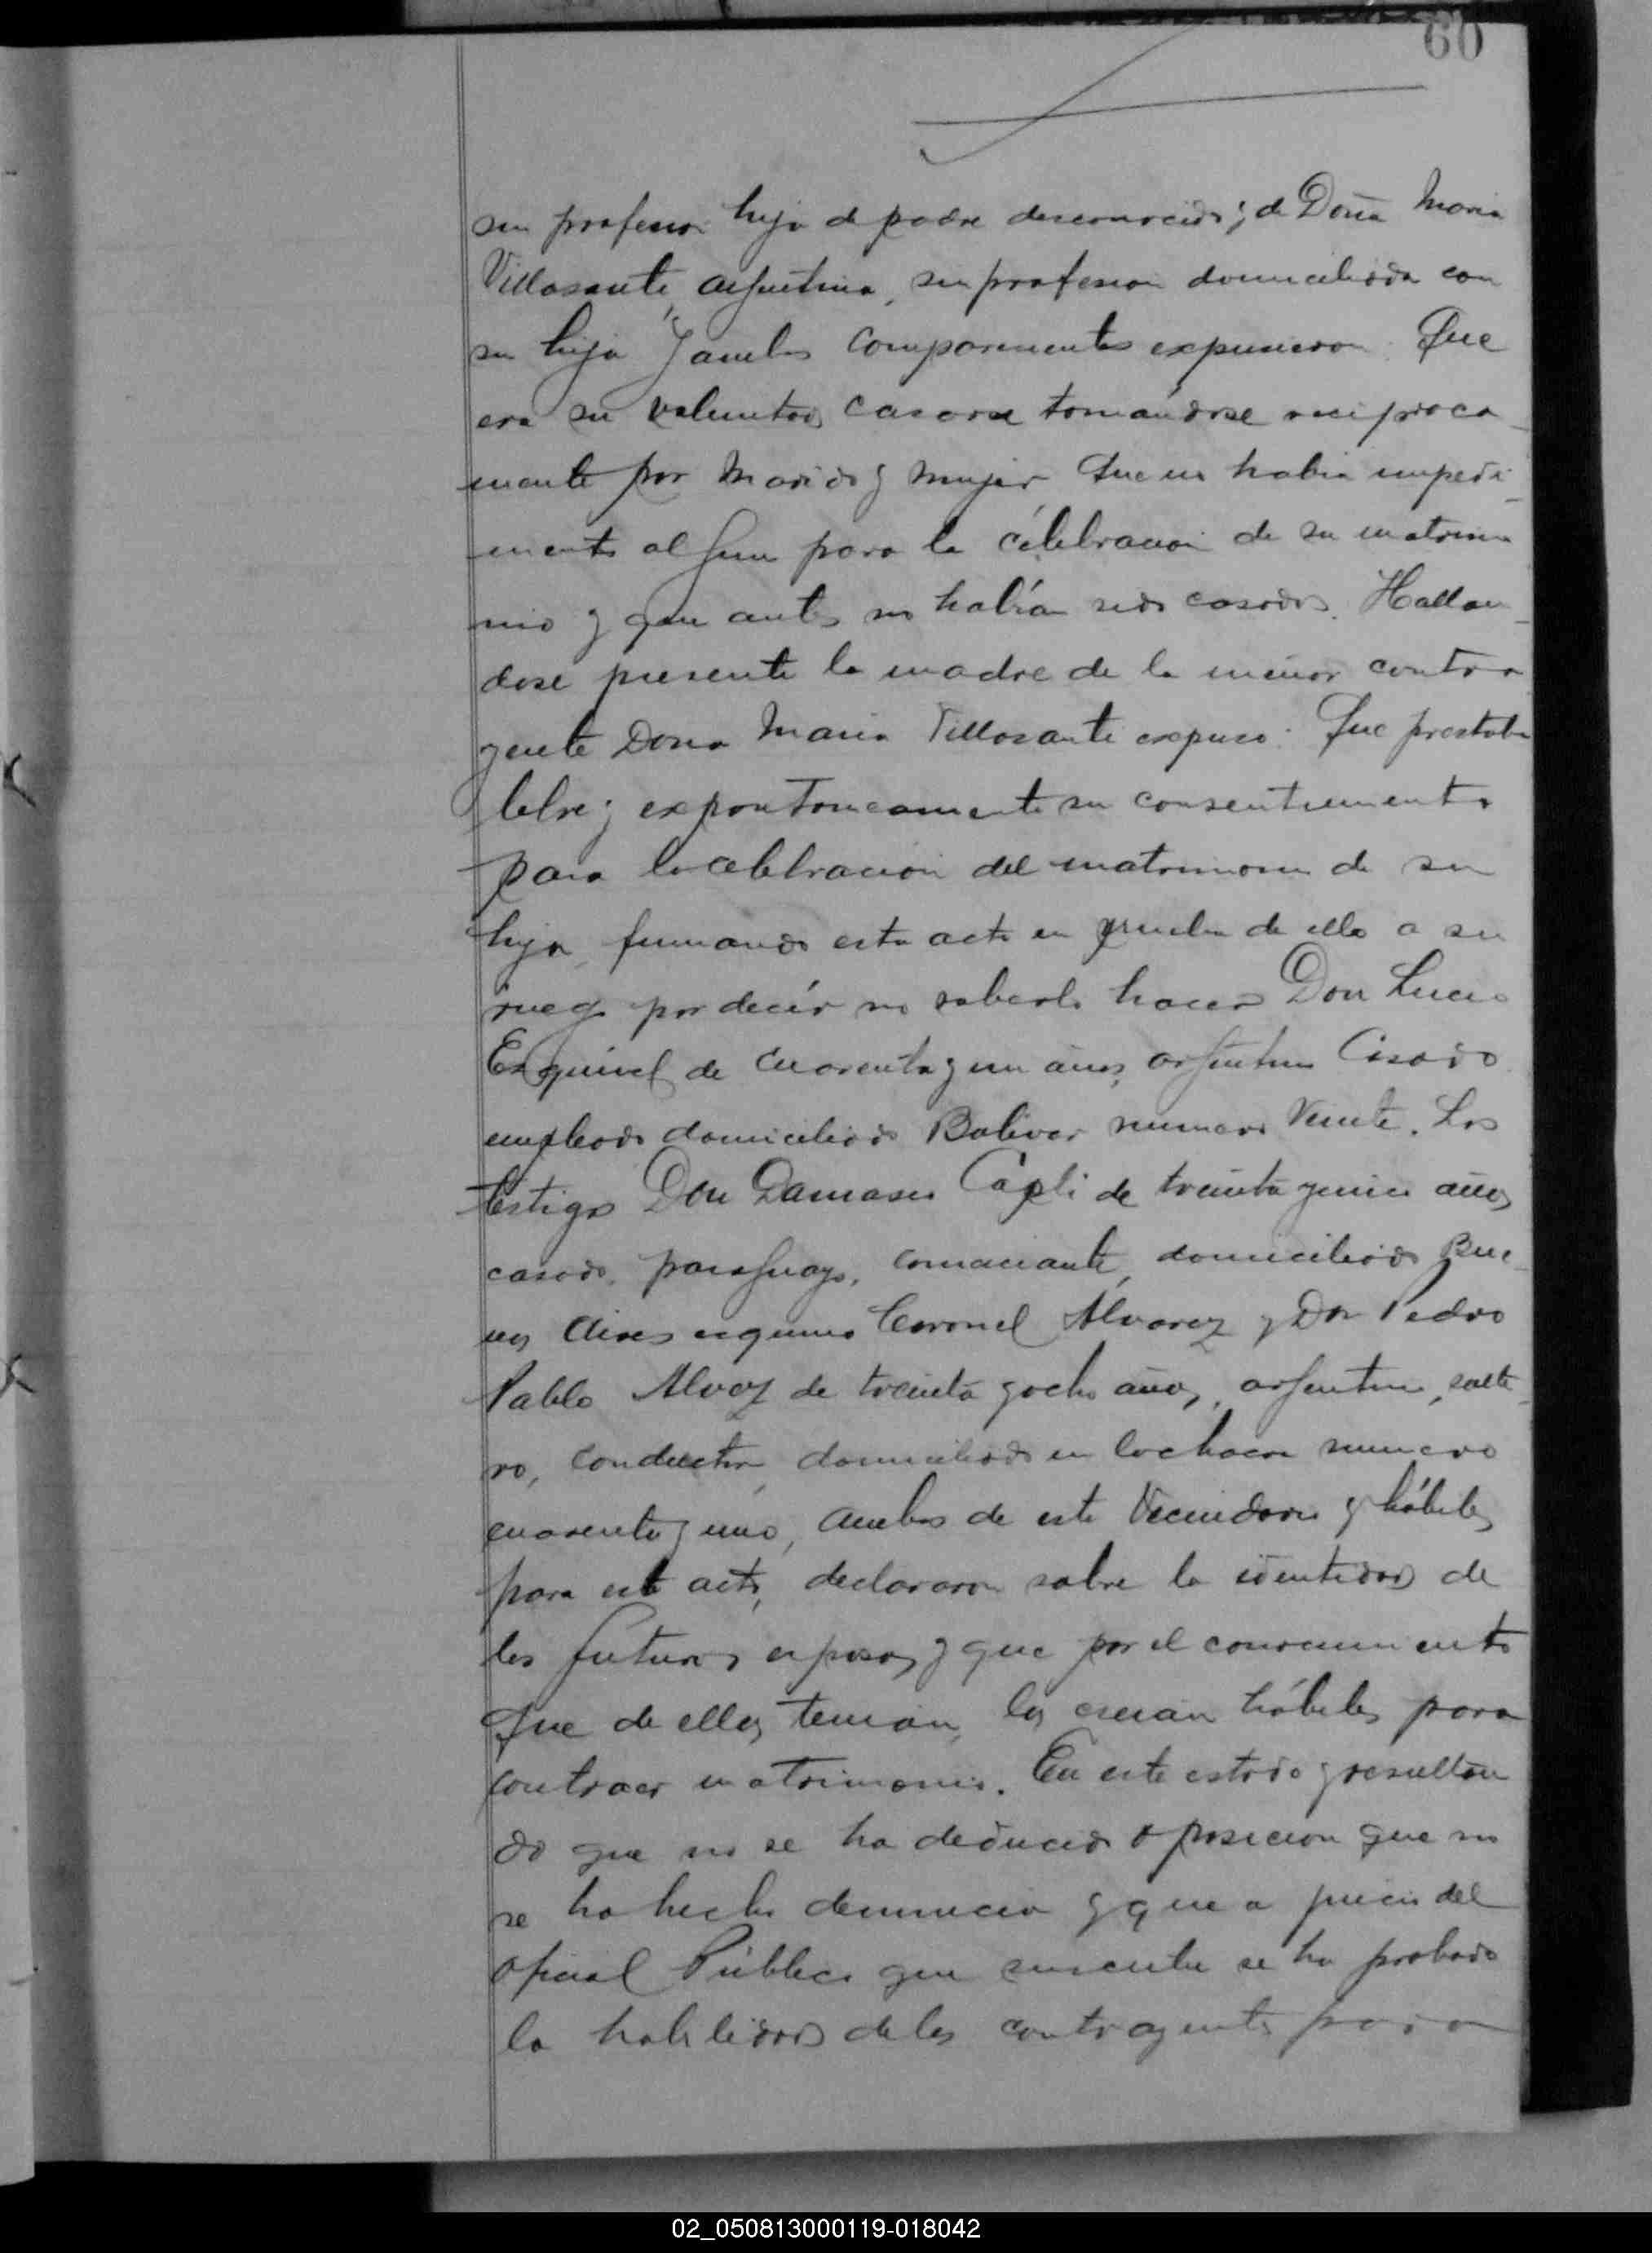 60
sin profesion hija de padre desconocido y de Doña Maria
Villasante, argentina, sin profesion domiciliada con
su hija y ambos comparecientes expusieron: Que
era su voluntad casarse tomándose reciproca-
mente por Marido y Mujer Que no habia impedi-
mento algun para la célebracion de su matrimo
nio y que antes no habían sido casados. Hallan-
dose presente la madre de la menor contra
yente Dona Maria Villasante expuso: Que prestaba
libre y expontoneamente su consentimiento
para la celebración del matrimonio de su
hija, firmando esta acta en prueba de ello a su
ruego por decir no saberlo hacer Don Lucio
Esquivel de cuarenta y un años, argentino Casado
empleado domiciliado Bolivar numero Veinte. Los
testigos Don Damaso de treinta y años
casado, paraguayo, comerciante, domiciliado Bue-
nos Aires esquina Coronel Alvarez y Don Pedro
Pablo de treinta y ocho años, argentino, solte-
ro, conductor, domiciliado en la chacra numero
cuarenta y uno, ambos de este Vecindario y hábiles
para este acto, declararon sobre la identidad de
los futuros esposos y que por el conocimiento
que de ellos tenian, los creian hábiles para
contraer matrimonio. En este estado y resultan
do que no se ha deducido oposicion que no
se ha hecho denuncia y que a juicio del
oficial Público que suscribe se ha probado
la habilidad de los contrayentes para
02_050813000119-018042